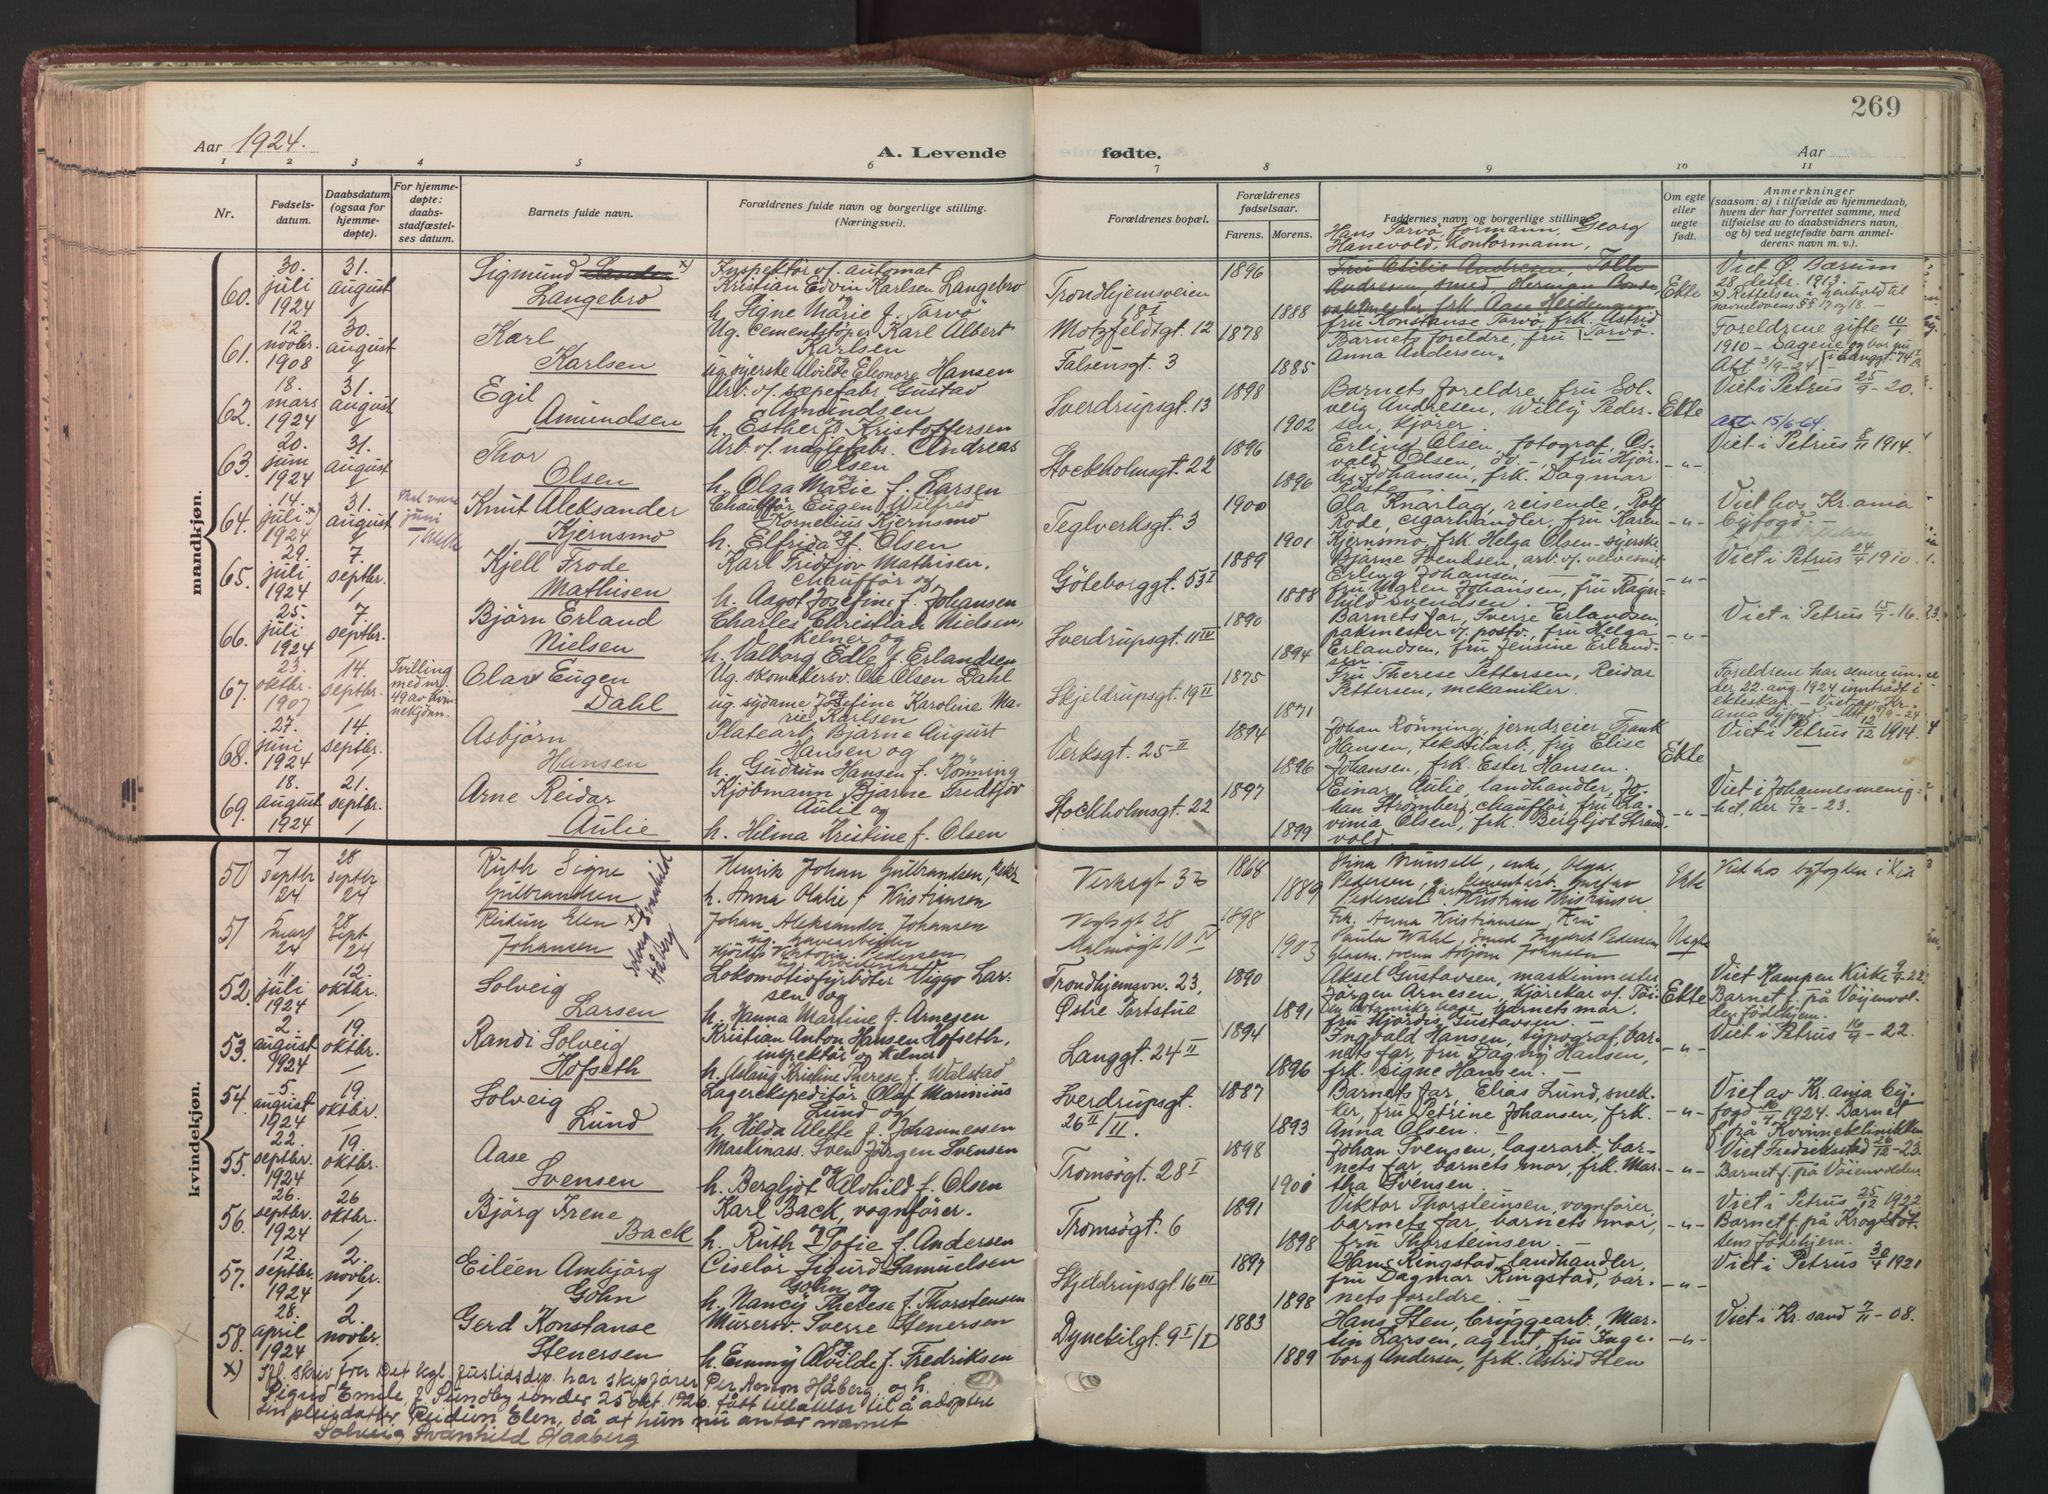 269
Aar 1924.
A. Levende fødte.
Aar
1 2 3 4 5 6 7 8 9 10 11
Nr.
Fødsels-
datum.
Daabsdatum
(ogsaa for
hjemme-
døpte).
For hjemme-
døpte:
daabs-
stadfæstel-
ses datum.
Barnets fulde navn.
Forældrenes fulde navn og borgerlige stilling.
(Næringsvei).
Forældrenes bopæl.
Forældrenes
fødselsaar.
Farens. Morens.
Faddernes navn og borgerlige stilling.
Om egte
eller
uegte
født.
Anmerkninger
(saasom: a) i tilfælde av hjemmedaab,
hvem der har forrettet samme, med
tilføielse av to daabsvidners navn,
og b) ved uegtefødte barn anmel-
derens navn m. v.).
mandkjøn.
60. 30. juli 1924
31. august
Sigmund
Langebro
Inspektør v. automat
Kristian Edvin Karlsen Langebro
og
h. Signe Marie f. Tarvo
Trondhjemsveien
18 I
1896
1888
Hans Tarvo, formann, Georg
Hanevold, kontormann,
fru Konstanse Tarvo, frk. Astrid
Tarvo.
Ekte
Viet Ø. Bærum
28. desbr. 1913.
61. 12. novbr. 1908
30. august
Karl
Karlsen
Ug. cementstøper Karl Albert
Karlsen
og
ug. syerske Alvilde Eleonore Hansen
Motzfeldtgt. 12
Falsensgt. 3
1878
1885
Barnets foreldre, fru
Anna Andersen.
Foreldrene gifte 10/1
1910 – Sagene og bor nu
i Langgt. 74
Att 3/9-24
62. 18. mars 1924
31. august
Egil
Amundsen
Arb. v. sæpefabr. Gustav
Amundsen
h. Esther f. Kristoffersen
Sverdrupsgt. 13
1898
1902
Barnets foreldre, fru Sol-
veig Andresen, Willy Peder-
sen, kjører.
Ekte
Viet i Petrus 25/9 - 20.
att 15/6-64.
63. 20. juni 1924
31. august
Thor
Olsen
Arb. v. naglefabr. Andreas
Olsen
og
h. Olga Marie f. Larsen
Stockholmsgt. 22
1896
1896
Erling Olsen, fotograf, Os-
vald Olsen, do –, fru Hjør-
dis Johansen, frk. Dagmar
-"-
Viet i Petrus 8/11 1914.
64. 14. juli 1924
31. august
Knut Aleksander
Kjernsmo
Chauffør Eugen Wilfred
Kornelius Kjernsmo
og
h. Elfrida f. Olsen
Teglverksgt. 3
1900
1901
Ola Knarlag, reisende, Rolf
Rode, cigarhandler, fru Karen
Kjernsmo, frk. Helga Olsen – syerske
-"-
Viet hos Kr.ania
byfogd. –
65. 29. juli 1924
7. septbr.
Kjell Frode
Mathisen
Karl Fridtjov Mathisen,
chauffør og
h. Aagot Josefine f. Johansen
Göteborggt. 53 I
1889
1888
Bjarne Svendsen, arb. v.
Erling Johansen, –
fru Maren Johansen, fru Ragn-
hild Svendsen. –
-"-
Viet i Petrus 24/4 1910.
66. 25. juli 1924
7 septbr.
Bjørn Erland
Nielsen
Charles Christian Nielsen,
kelner og
h. Valborg Edle f. Erlandsen
Sverdrupsgt. 11 III
1890
1894
Barnets far, Sverre Erlandsen,
pakmester v. postv., fru Helga
Erlandsen, fru Jensine Erland-
sen.
-"-
Viet i Petrus 15/9 - 16.
67. 23. oktbr. 1907
14. septbr.
Tvilling
med nr.
49 av kvin-
nekjønn.
Olav Eugen
Dahl
Ug. skomakersv. Ole Olsen Dahl
og
ug. sydame Josefine Karoline Ma-
rie Karlsen
Skjeldrupsgt. 19 II
1875
1871
Fru Therese Pettersen, Reidar
Pettersen, mekaniker.
Foreldrene har senere un-
der 22. aug. 1924 inntrådt i
ekteskap. – Viet av Kr.
ania byfogd. – Att 19/9-24
68. 27. juni 1924
14. septbr.
Asbjørn
Hansen
Platearb. Bjarne August
Hansen og
h. Gudrun Hansen f. Rønning
Verksgt. 25 II
1894
1896
Johan Rønning, jerndreier, Frank
Hansen, tekstilarb., fru Elise
Johansen, frk. Ester Hansen.
Ekte
Viet i Petrus 12/12 1914.
69. 18. august 1924
21. septbr.
Arne Reidar
Aulie
Kjøbmann Bjarne Fredtjov
Aulie og
h. Hilma Kristine f. Olsen
Stockholmsgt. 22
1897
1899
Einar Aulie, landhandler, Jo-
han Strømberg, chauffør, fru La-
vinia Olsen, frk. Bergljot Strand-
vold.
-"-
Viet i Johannesmenig-
het, her 9/12 - 23.
kvindekjøn.
50 7 septbr 24
28 septbr 24
Ruth Signe
Gulbrandsen
Henrik Johan Gulbrandsen,
h. Anna Olalie f Kristiansen
Verksgt 3
1868
1889
Stina Brunsell, enke, Olga
Pedersen, Gustav
Pedersen, Kristian Kristiansen
Ekte
Viet hos byfogden i Kra
51 5 mars 24
28 sept 24
Reidun Elen x)
Johansen
Solveig Svanhild
Håberg
Johan Aleksander Johansen
ug. havearbeider
Hjørdis Viktoria Pedersen
ug. arbeiderske
Verksgt 28
Malmøgt 10 IV
1898
1903
Frk. Anna Kristiansen, Fru
Paula Wahl, Ingvart Pedersen
Uegte
52. 11. juli 1924
12. oktbr.
Solveig
Larsen
Lokomotivfyrbøter Viggo Lar-
sen og
h. Hanna Martine f. Arnesen
Trondhjemsvn. 23,
Østre Portstue
1890
1891
Aksel Gustavsen, maskinmester
Jørgen Arnesen, kjørekar v. Tøi-
en botaniske have, barnets mor,
fru Hjørdis Gustavsen. –
Ekte
Viet Kampen Kirke 9/7 22.
Barnet f. på Vøienvol-
den fødehjem.
53. 2. august 1924
19. oktbr.
Randi Solveig
Hofseth
Kristian Anton Hansen Hofseth,
inspektør og kelner
h. Aslaug Kristine Therese f. Walstad
Langgt. 24 II
1894
1896
Ingvald Hansen, typograf, bar-
nets far, fru Dagny Hansen,
frk. Signe Hansen. –
-"-
Viet i Petrus 16/9 - 22.
54. 5 august 1924
19. oktbr.
Solveig
Lund
Lagerekspeditør Olaf Marinius
Lund og
h. Hilda Alette f. Johannessen
Sverdrupsgt.
26 II/II.
1887
1893
Barnets far, Elias Lund, snek-
ker, fru Petrine Johansen, frk.
Anna Olsen. –
-"-
Viet av Kr.ania by-
fogd 16/4 1924. Barnet
f. på Kvinneklinikken
55. 22. septbr. 1924
19. oktbr.
Aase
Svensen
Maskinass. Sven Jørgen Svensen
og
h. Bergljot Alvhild f. Olsen
Tromsøgt. 28 I
1898
1901
Johan Svensen, lagerarb., bar-
nets far, barnets mor, frk. Mar-
tha Svensen.
-"-
Viet Fredrikstad 26/12 - 23.
Barnet f. på Vøienvolden
56. 26. septbr. 1924
26 oktbr.
Bjørg Irene
Back
Karl Back, vognfører.
og
h. Ruth Sofie f. Andersen
Tromsøgt. 6
1891
1898
Viktor Thorsteinsen, vognfører,
barnets far, barnets mor,
fru Thorsteinsen. –
-"-
Viet i Petrus 25/12 1922
Barnet f. på Krogstöt-
tens fødehjem.
57. 12. septbr. 1924
2. novbr.
Eiléen Ambjörg
Göhn
Ciselør Sigurd Samuelsen
Göhn og
h. Nancy Therese f. Thorstensen
Skjeldrupsgt. 16 III
1897
1898
Hans Ringstad, landhandler,
fru Dagmar Ringstad, bar-
nets foreldre. –
-"-
Viet i Petrus 30/4 1921
58. 28. april 1924
2. novbr.
Gerd Konstanse
Stenersen
Murersv. Sverre Stenersen
og
h. Emmy Alvilde f. Fredriksen
Dynekilgt. 9 I/II
1883
1889
Hans Sten, bryggearb., Mar-
tin Larsen, agent, fru Inge-
borg Andersen, frk. Astrid Sten
-"-
Viet i Kr.sand 7/11 - 08.
x) Ifl. skriv fra Det kgl. justisdep. har skipsfører Per Anton Håberg og h.
Sigrid Emilie f. Sundby under 25 okt. 1926 fått tillatelse til å adoptere
sin pleiedatter Reidun Elen, så at hun nu antar navnet
Solveig Svanhild Haaberg